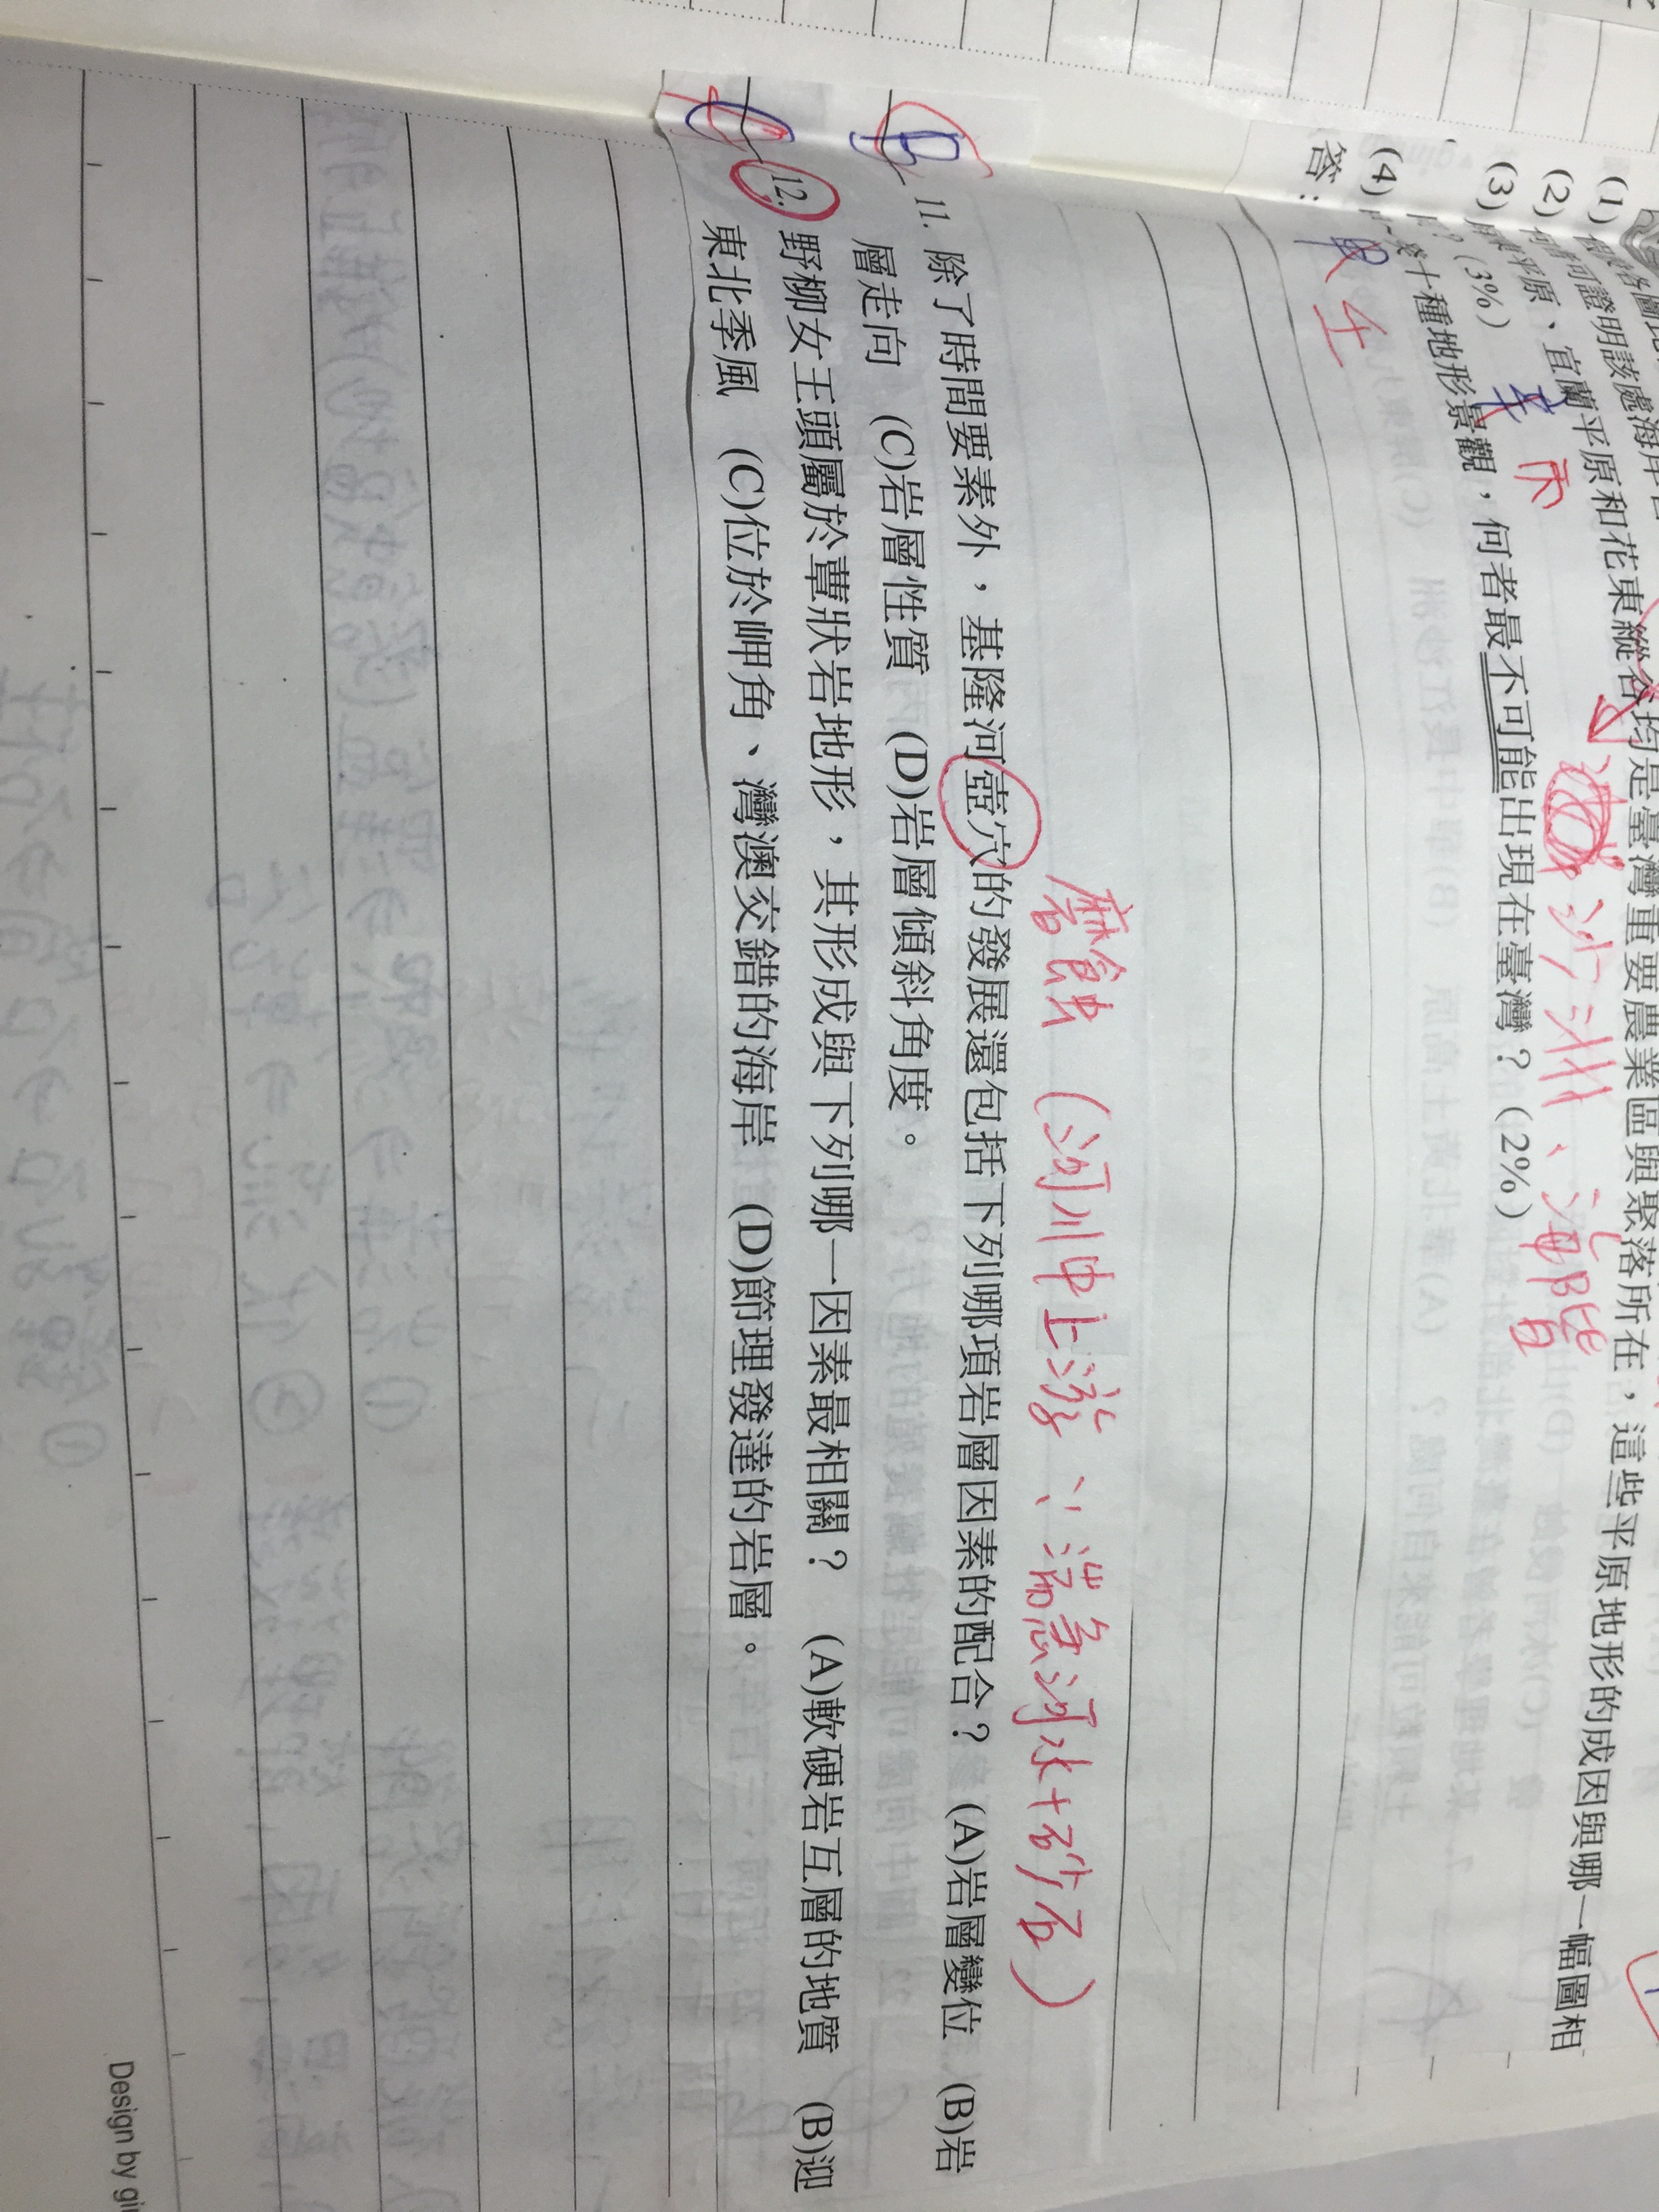 (1)
(2) 可證明該處海岸
(3) 平原、宜蘭平原和花東縱谷均是臺灣重要農業區與聚落所在，這些平原地形的成因與哪一幅圖相
？(3%)
丙
沙洲、海階
(4) 十種地形景觀，何者最不可能出現在臺灣？(2%)
答：
磨蝕（河川中上游、湍急河水+砂石）
11. 除了時間要素外，基隆河壺穴的發展還包括下列哪項岩層因素的配合？ (A)岩層變位 (B)岩
層走向 (C)岩層性質 (D)岩層傾斜角度。
12. 野柳女王頭屬於蕈狀岩地形，其形成與下列哪一因素最相關？ (A)軟硬岩互層的地質 (B)迎
東北季風 (C)位於岬角、灣澳交錯的海岸 (D)節理發達的岩層。
Design by